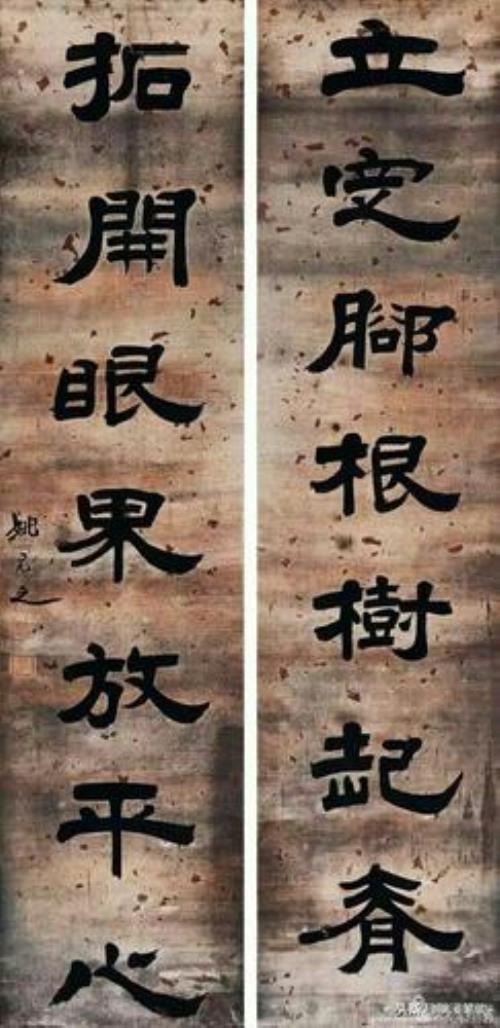 立定腳根樹起脊
拓開眼果放平心
姚元之